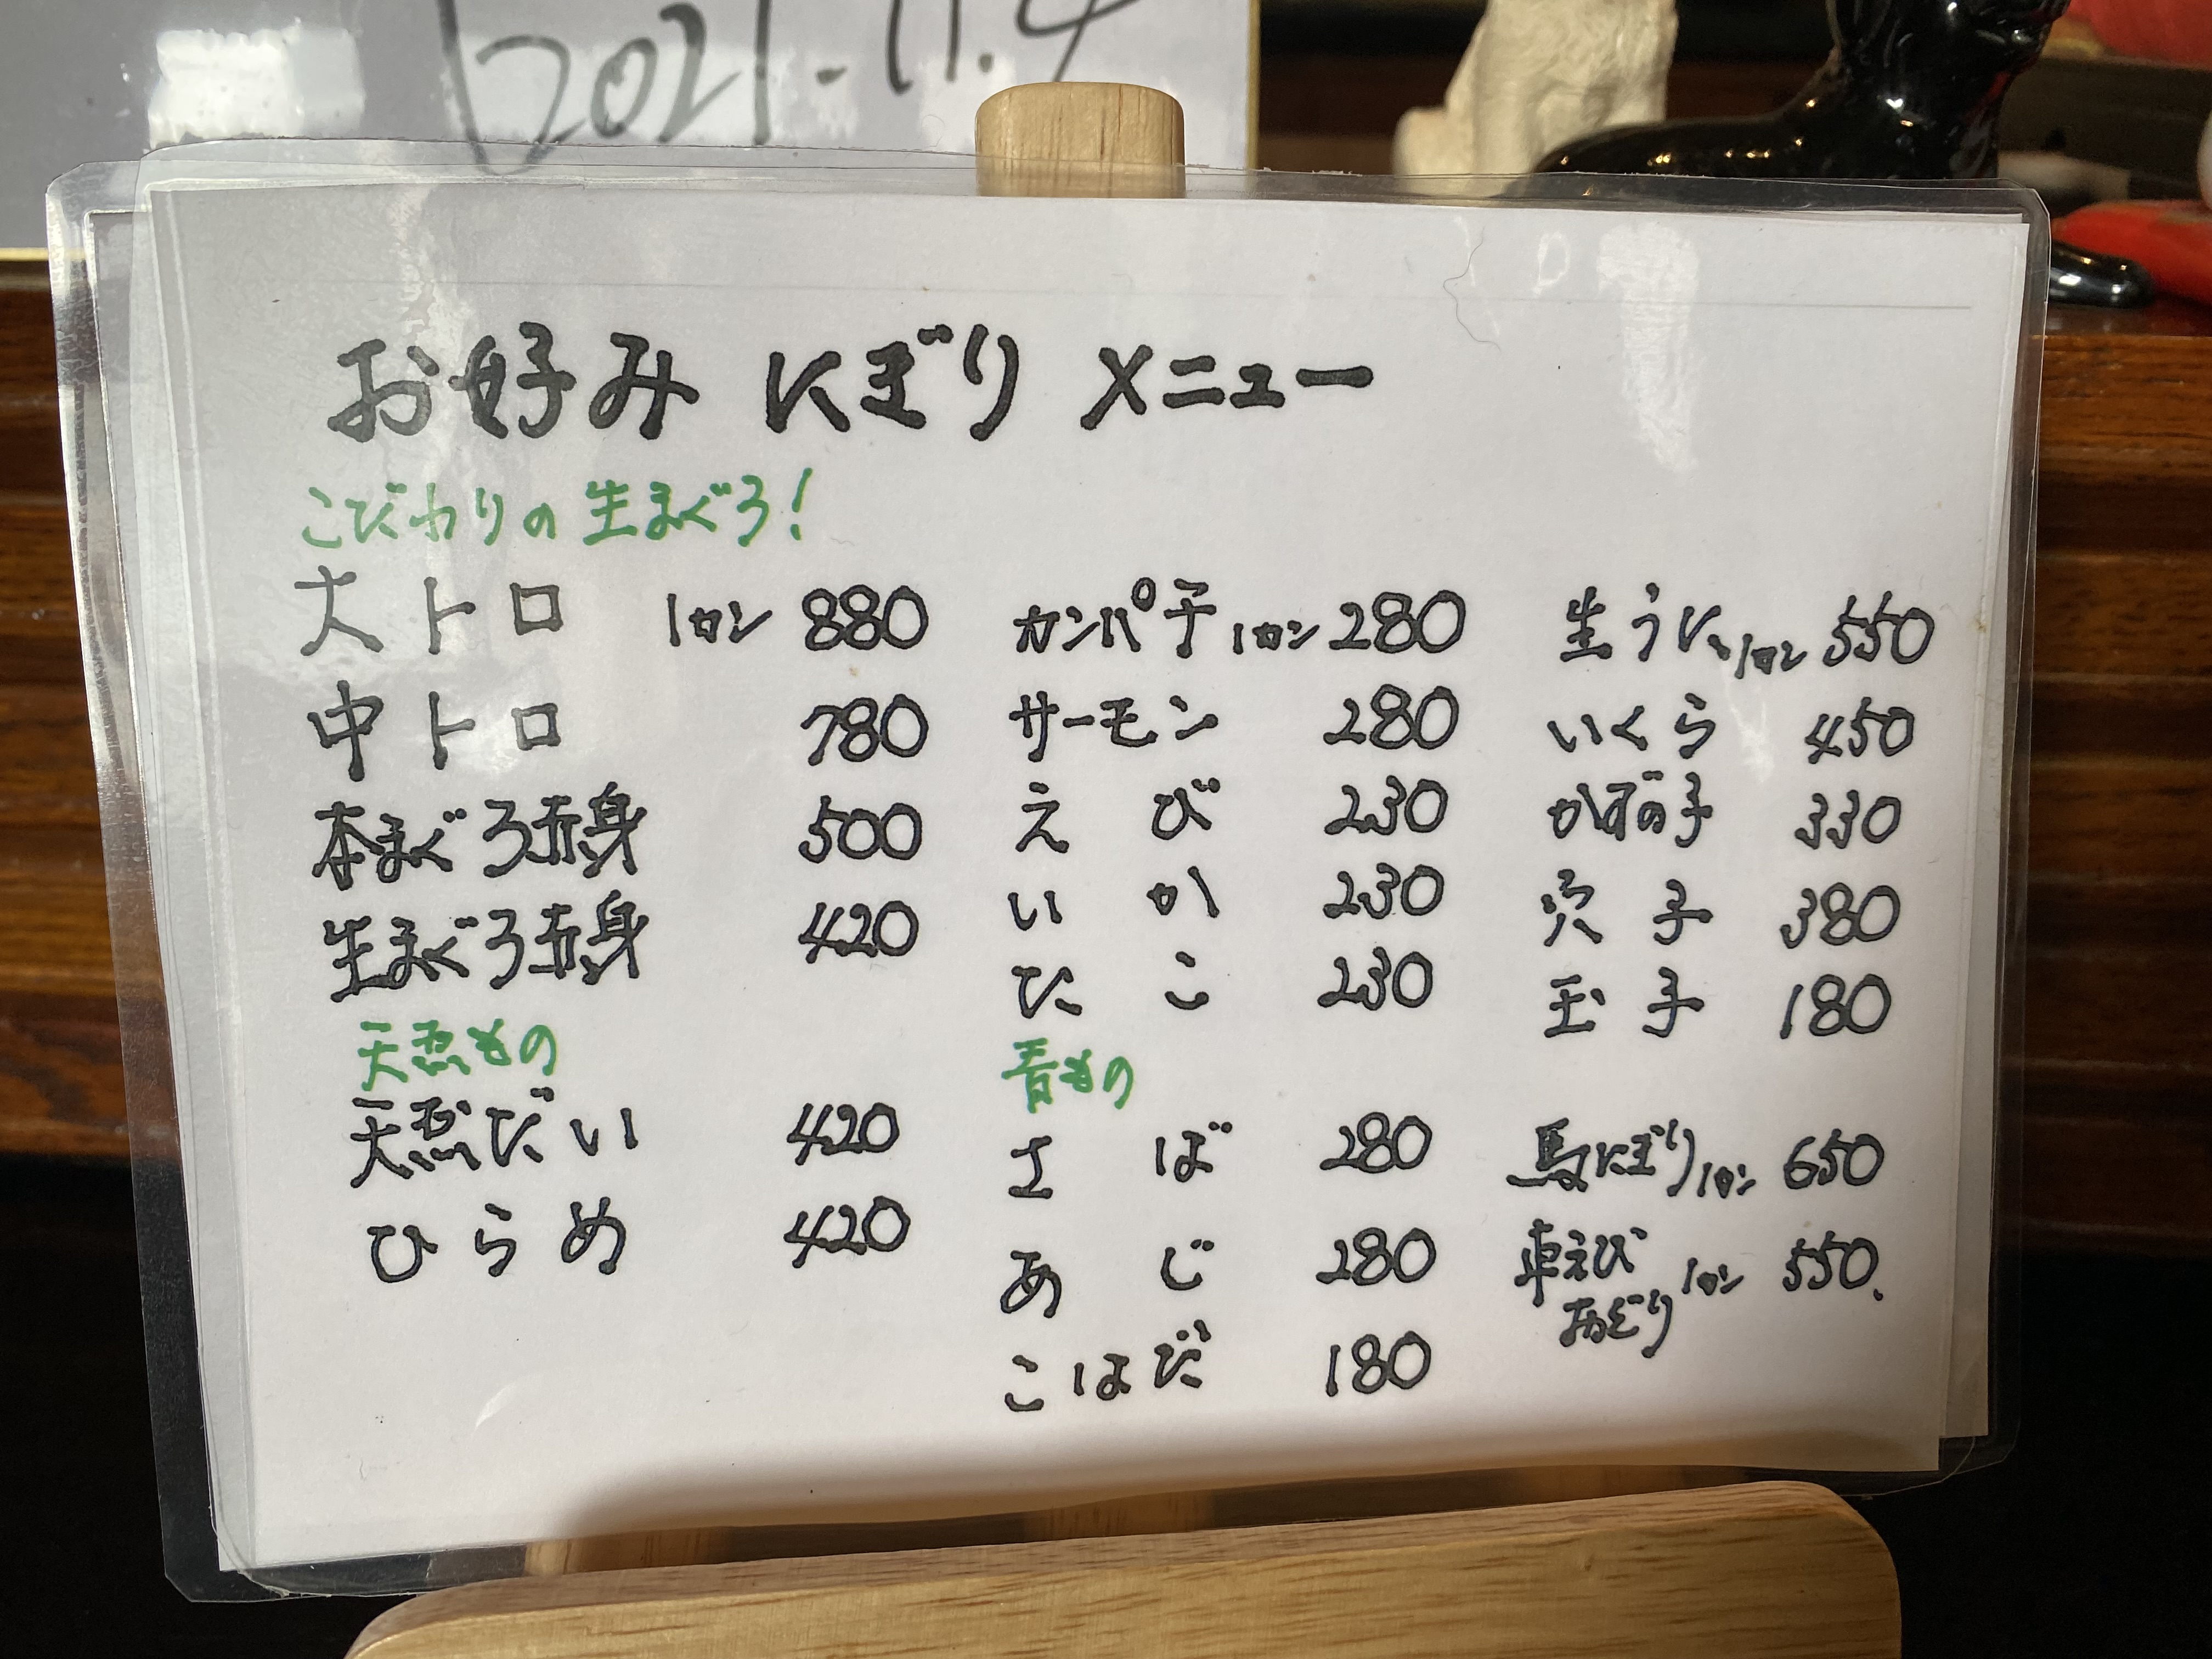 2021.11.4
お好み にぎり メニュー
こだわりの生まぐろ!
大トロ 1カン 880
中トロ 780
本まぐろ赤身 500
生まぐろ赤身 420
天然もの
天然だい 420
ひらめ 420
カンパチ 1カン 280
サーモン 280
えび 230
いか 230
たこ 230
青もの
さば 280
あじ 280
こはだ 180
生うに 1カン 550
いくら 450
かずの子 330
穴子 380
玉子 180
馬にぎり 1カン 650
車えび
おどり 1カン 550.